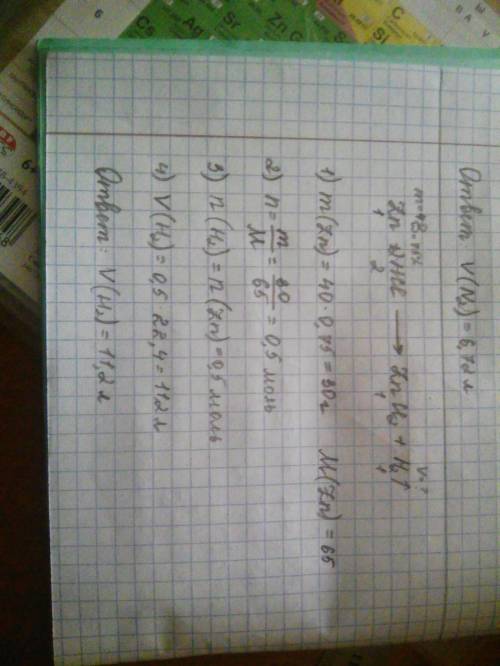 Ответ V(H₂)=6,72 л
Zn + 2HCl → ZnCl₂ + H₂↑
1 2 1 1
1) m(Zn) = 40·0,75=30г M(Zn)=65
2) n = m/M = 30/65 = 0,5 моль
3) n(H₂) = n(Zn)=0,5 моль
4) V(H₂)=0,5 22,4=11,2 л
Ответ: V(H₂)=11,2 л
Cs
Ag
Sr
Zn
C
6
6+